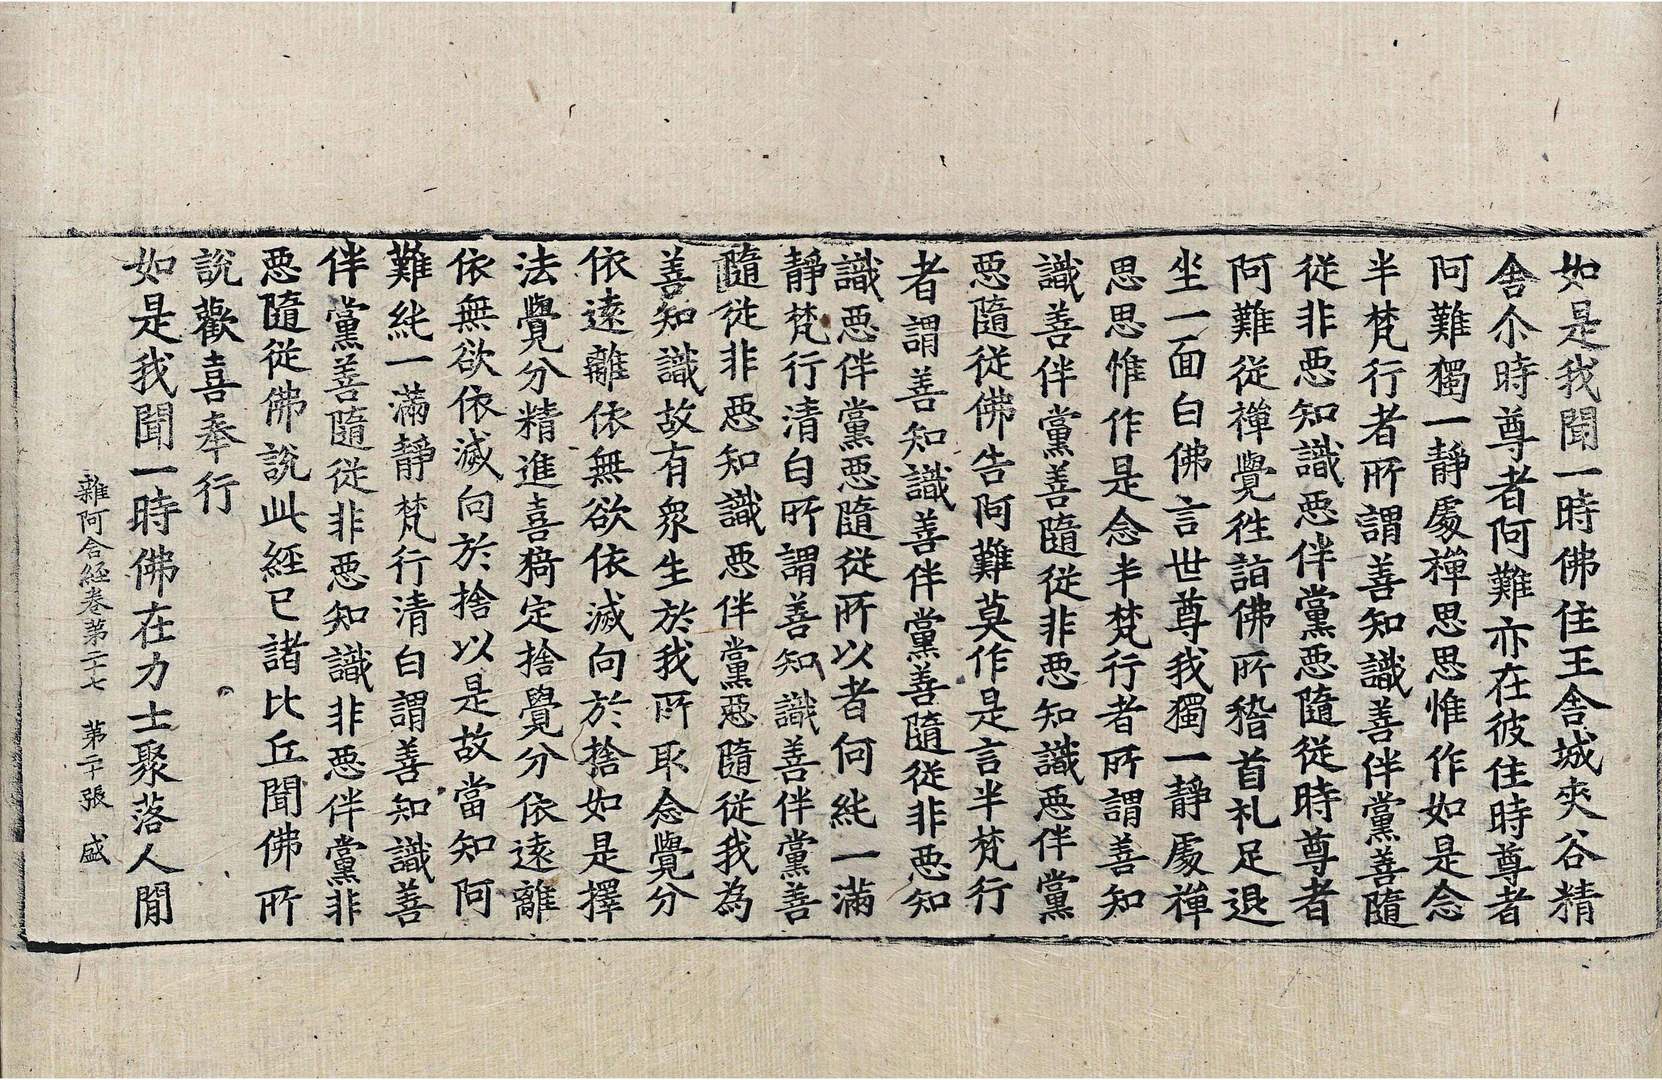 如是我聞一時佛住王舍城夾谷精
舍尒時尊者阿難亦在彼住時尊者
阿難獨一靜處禪思思惟作如是念
半梵行者所謂善知識善伴黨善隨
從非惡知識惡伴黨惡隨從時尊者
阿難從禪覺徃詣佛所稽首礼足退
坐一面白佛言世尊我獨一靜處禪
思思惟作是念半梵行者所謂善知
識善伴黨善隨從非惡知識惡伴黨
惡隨從佛告阿難莫作是言半梵行
者謂善知識善伴黨善隨從非惡知
識惡伴黨惡隨從所以者何純一滿
靜梵行清白所謂善知識善伴黨善
隨從非惡知識惡伴黨惡隨從我為
善知識故有衆生於我所取念覺分
依遠離依無欲依滅向於捨如是擇
法覺分精進喜猗定捨覺分依遠離
依無欲依滅向於捨以是故當知阿
難純一滿靜梵行清白謂善知識善
伴黨善隨從非惡知識非惡伴黨非
惡隨從佛說此經已諸比丘聞佛所
說歡喜奉行
如是我聞一時佛在力士聚落人間
雜阿含經卷第二十七 第二十張 盛